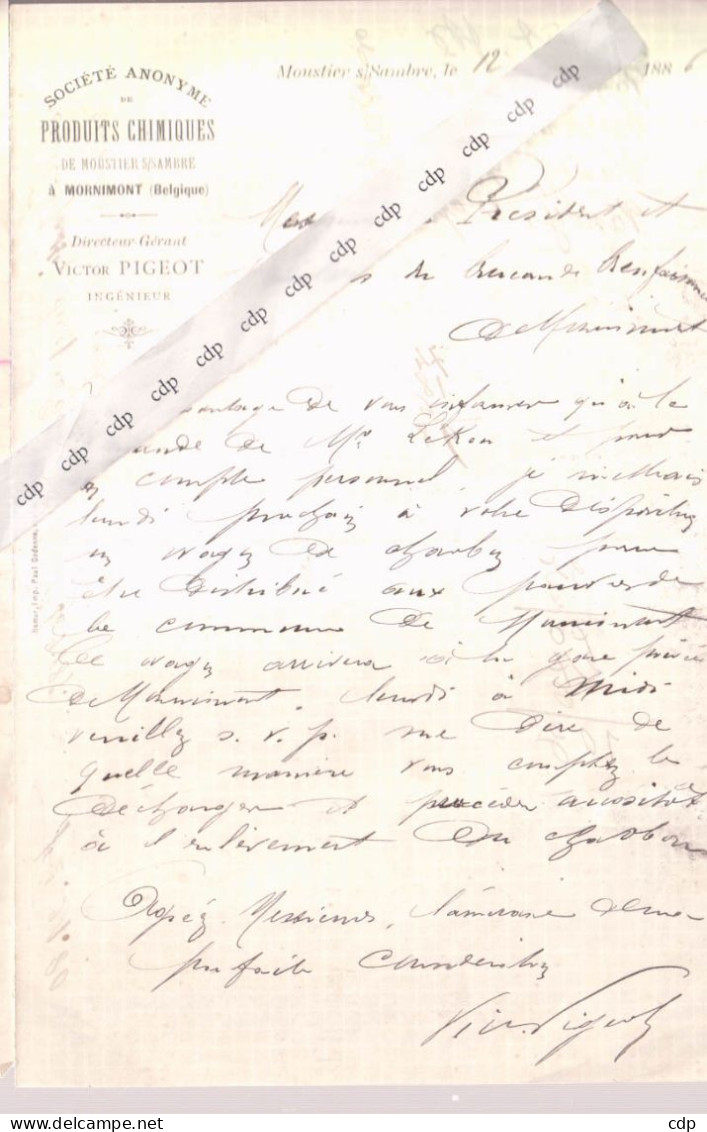 SOCIÉTÉ ANONYME
DE
PRODUITS CHIMIQUES
DE MOUSTIER S/SAMBRE
À MORNIMONT (Belgique)
Directeur-Gérant
VICTOR PIGEOT
INGÉNIEUR
Moustier s/Sambre, le 12 188 6
Président et
du Bureau de Bienfaisance
de Mornimont
de vous informer qu'à la
de Mr. et pour
compte personnel, je mettrais
lundi prochain à votre disposition
un wagon de charbon pour
être distribué aux pauvres de
la commune de Mornimont
Ce wagon arrivera à la gare privée
de Mornimont, lundi à midi
veuillez s. v. p. me dire de
quelle manière vous comptez le
décharger et procéder aussitôt
à l'enlèvement du charbon
Agréez Messieurs, l'assurance de ma
parfaite considération
Vic. Pigeot
Namur, Imp. Paul Godenne
cdp cdp cdp cdp cdp cdp cdp cdp cdp cdp cdp cdp cdp
cdp